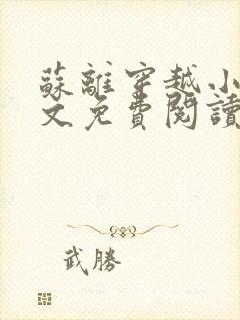 蘇離穿越小
文免費閱讀
武勝